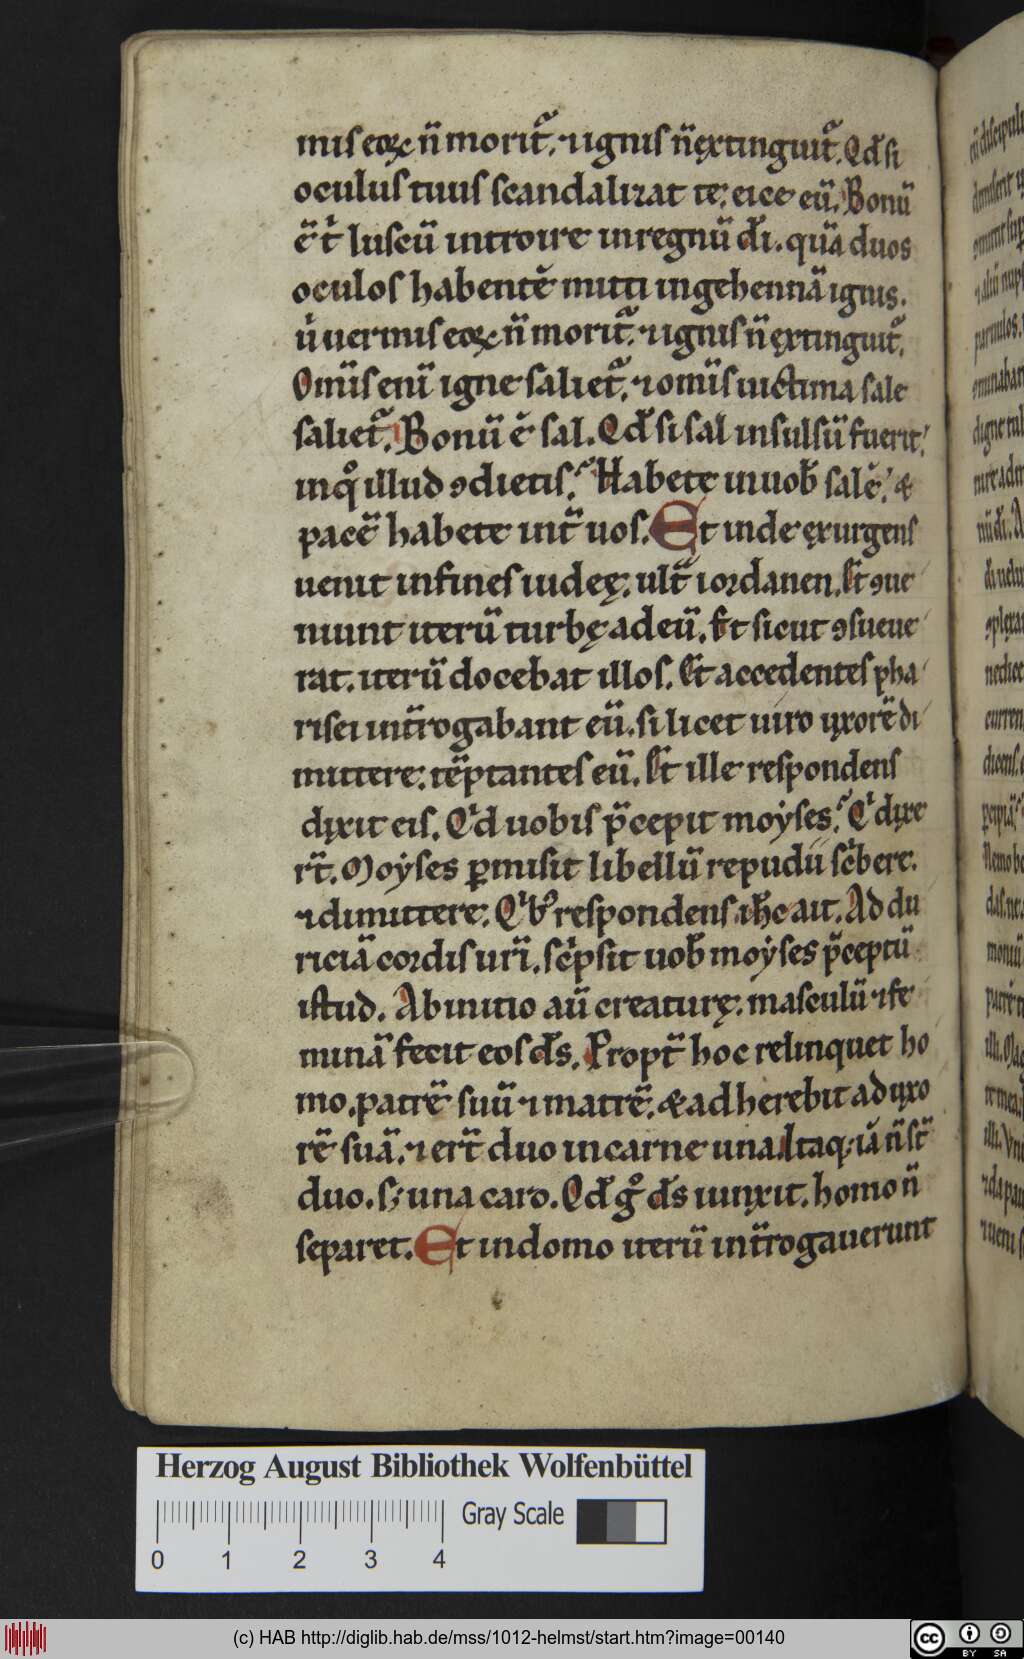 mis eoꝝ n̄ morit᷑. ⁊ ignis n̄ extinguit᷑. Qd̄ si
oculus tuus scandalizat te; eice eū. Bonū
ē t̄ luscū introire in regnū dī. quā duos
oculos habentē mitti in gehennā ignis.
ū uermis eoꝝ n̄ morit᷑. ⁊ ignis n̄ extinguit᷑.
Omīs enī igne saliet᷑. ⁊ omīs uictima sale
saliet᷑. Bonū ē sal. Qd̄ si sal insulsū fuerit.
in qͦ illud ꝯdietis. Habete in uob̄ salē. &
pacē habete int̄ uos. Et inde ęxurgens
uenit in fines iudeę; ult̄ iordanen. Et ꝯue
niunt iterū turbę ad eū. Et sicut ꝯsueue
rat. iterū docebat illos. Et accedentes pha
risei int̄rogabant eū. si licet uiro ųxorē di
mittere; tēptantes eū. Et ille respondens
dixit eis. Qͥd uobis p̄cepit moẏses. Qͥ dixe
rt̄. Moẏses ꝑmisit libellū repudii sc̄bere.
⁊ dimittere; Qͥb; respondens ih̄c ait. Ad du
riciā cordis urī. sc̄psit uob̄ moẏses p̄ceptū
istud. Ab initio aū creaturę; masculū ⁊ fe
minā fecit eos ds̄. Propt̄ hoc relinquet ho
mo. patrē suū ⁊ matrē. & adherebit ad uxo
rē suā. ⁊ ert̄ duo in carne una. Itaq; iā n̄ st̄
duo. s; una caro. Qd̄ gͦ ds̄ iunxit. homo n̄
separet. Et in domo iterū int̄rogauerunt
Herzog August Bibliothek Wolfenbüttel
Gray Scale
0 1 2 3 4
(c) HAB http://diglib.hab.de/mss/1012-helmst/start.htm?image=00140
cc BY SA